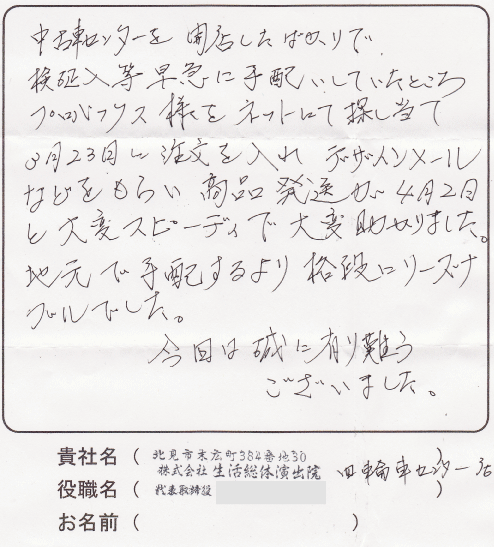 中古車センターを開店したばかりで
検証入等早急に手配していたところ
プロバックス様をネットにて探し当て
3月23日に注文を入れデザインメール
などをもらい商品発送が4月2日
と大変スピーディで大変助かりました。
地元で手配するより格段にリーズナ
ブルでした。
今回は誠に有り難う
ございました。
貴社名(北見市末広町384番地30
株式会社生活総体演出院 四輪車センター店)
役職名(代表取締役)
お名前()